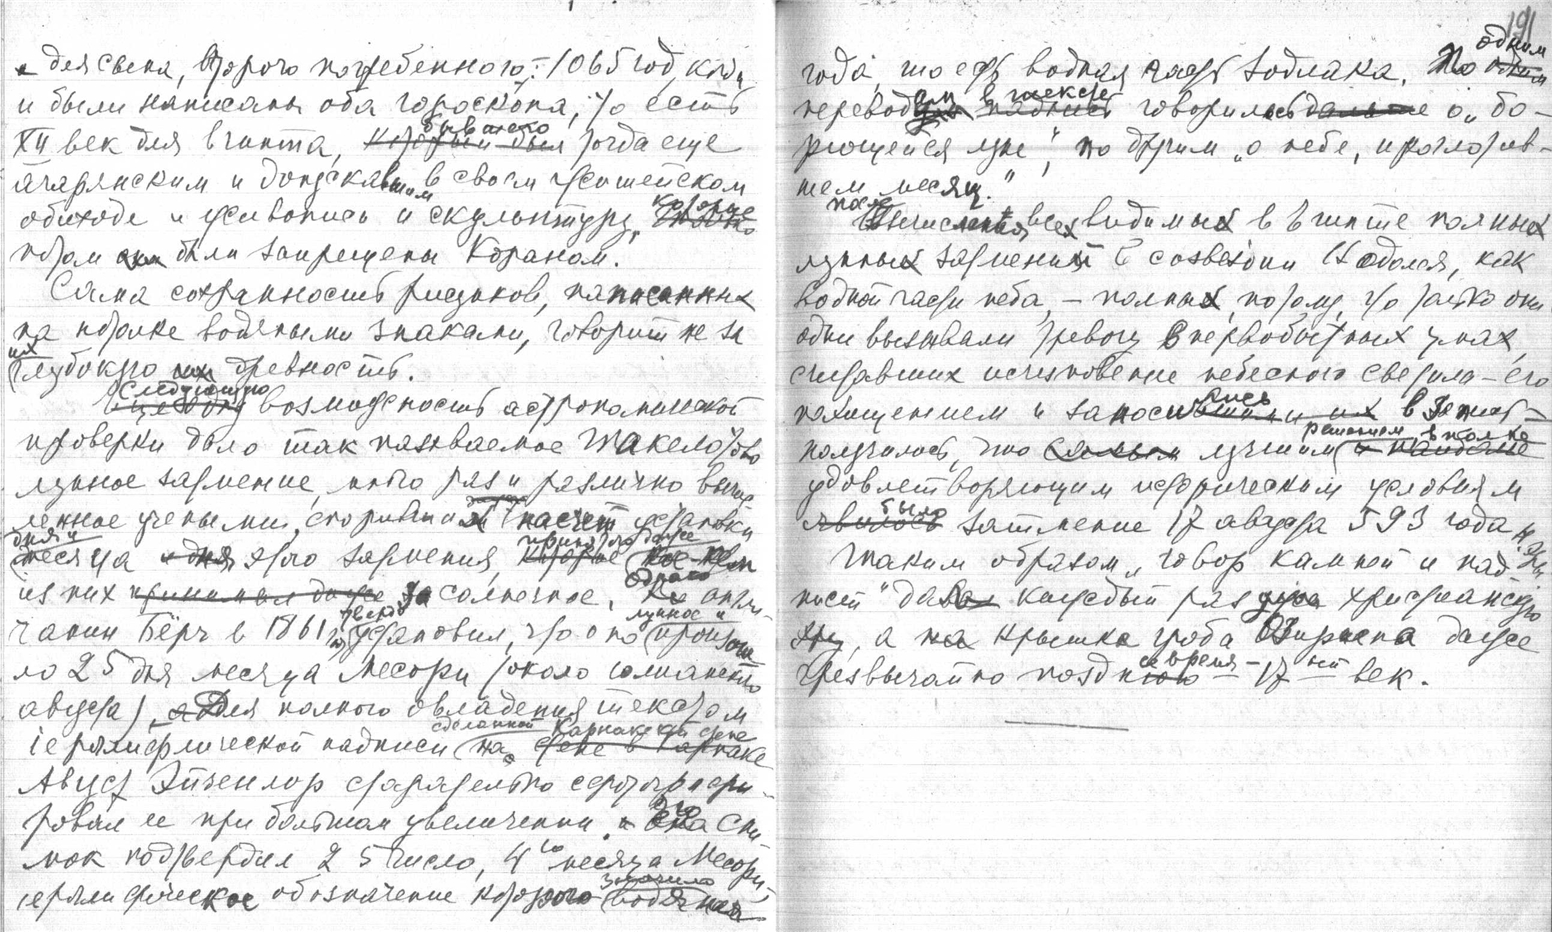 для свека, второго погребенного: 1065 год, когда
и были написаны оба гороскопа, то есть
XII век для Египта, бывшего тогда еще
агарянским и допускавшим в своем житейском
обиходе и живопись и скульптуру, которые
потом были запрещены Кораном.
Сама сохранность рисунков, написанных
на потолке водяными знаками, говорит не за
их глубокую древность.
Следующую возможность астрономической
проверки дало так называемое Такелотово
лунное затмение, много раз и различно вычис-
ленное учеными, спорившими насчет установки
дня и месяца этого затмения,
из них за солнечное. Однако англи-
чанин Бёрч в 1861 г. твердо установил, что оно лунное и произош-
ло 25 дня месяца Месори (около юлианского
августа). Для полного овладения текстом
иероглифической надписи сделанной на Карнакской стене
Август Эйзенлор старательно сфотографи-
ровал ее при большом увеличении. Это сни-
мок подтвердил 25 число, 4го месяца Месори,
иероглифическое обозначение которого значило водяная
191
года, то есть водная часть Зодиака. По одним
переводам в тексте говорилось о „бо-
рющейся луне“, по другим „о небе, проглотив-
шем месяц.“
После вычисления всех видимых в Египте полных
лунных затмений в созвездии Водолея, как
водной части неба, — полных, потому, что только они
одни вызывали тревогу в первобытных умах,
считавших исчезновение небесного светила — его
похищением и заносилось в летопись —
получилось, что лучшим решением вполне
удовлетворяющим историческим условиям
было затмение 17 августа 593 года н. эры
Таким образом, „говор камней и над-
писей“ давал каждый раз христианскую
эру, а крышка гроба Озириса даже
чрезвычайно позднее время — 17 ый век.